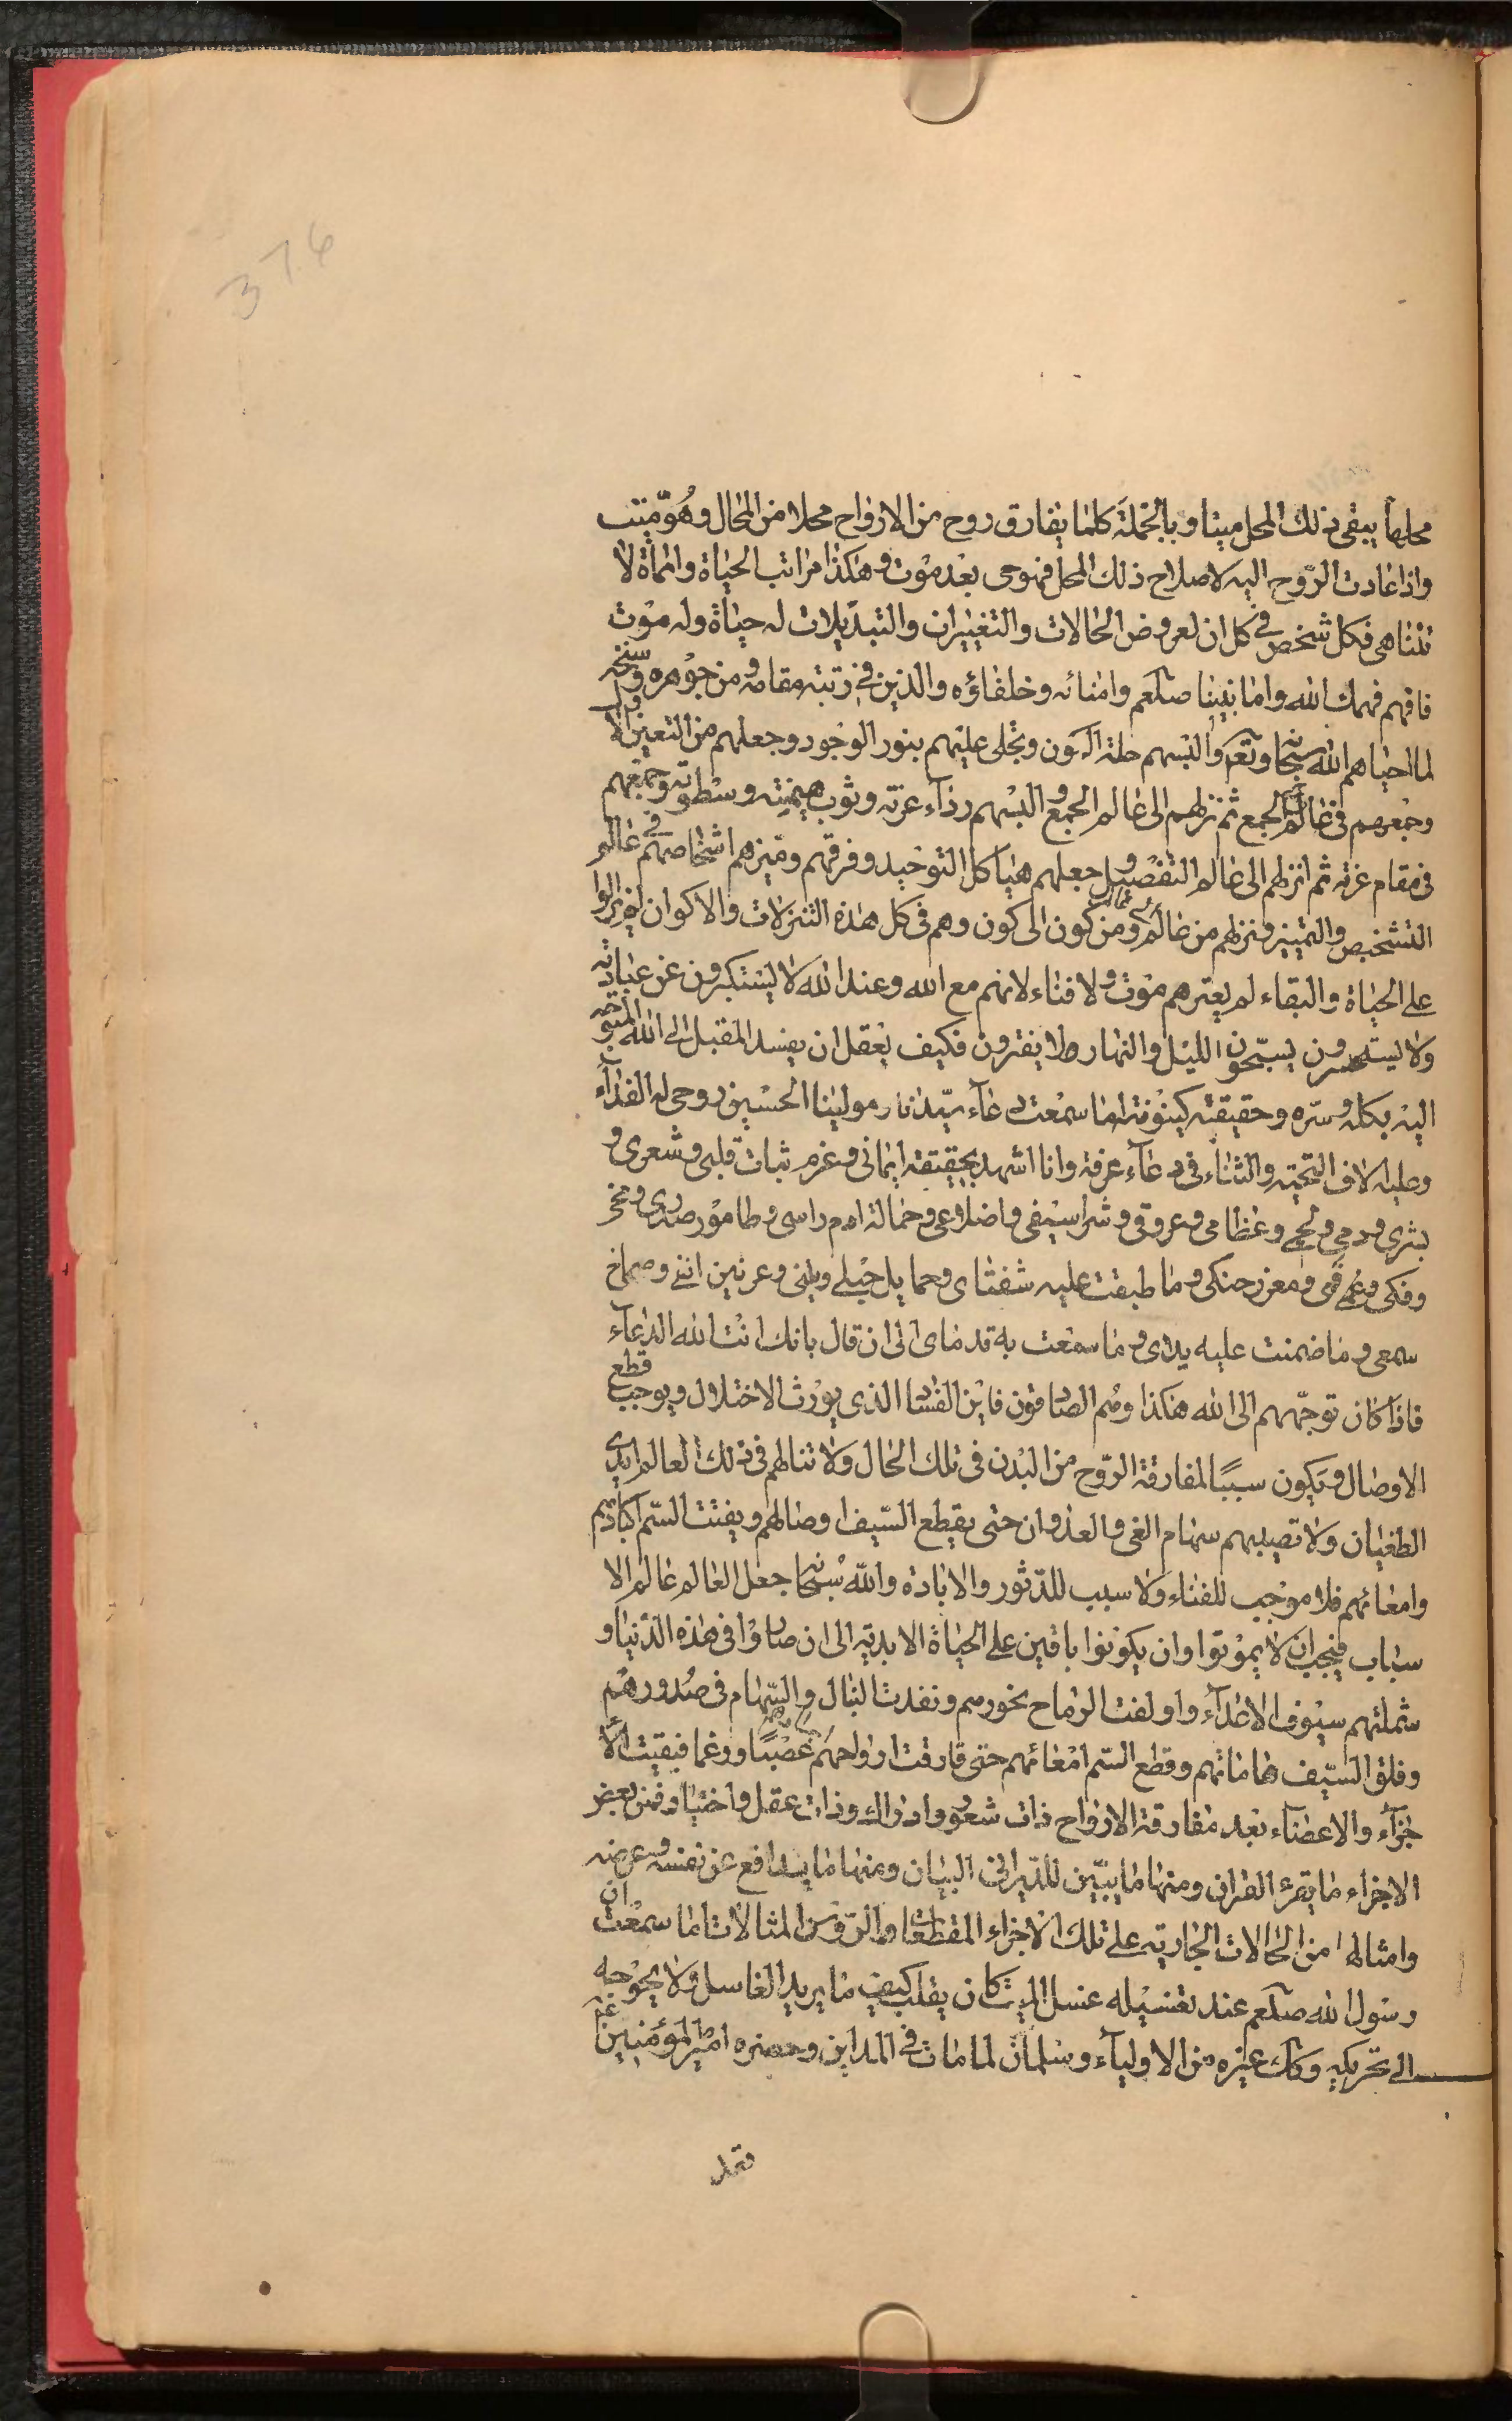 376
محلها يبقى ذلك المحل ميتا وبالجملة كلما يفارق روح من الارواح محلا من المحال وهو ميت
واذا عادت الروح اليه لاصلاح ذلك المحل فهو حى بعد موت و هكذا مراتب الحياة وامماة لا
تتناهى فكل شخص فى كل ان لعروض الحالات والتغييرات والتبديلات له حياة وله موت
فافهم فهمك الله واما نبينا صلعم وامنائه وخلفاؤه والذين فى رتبته ومقامه و من جوهره وسنخه
لما احياهم الله سبحانه وتعه والبسهم حلة الكون وتجلى عليهم بنور الوجود وجعلهم من التعين الاول
وجمعهم فى عالم جمع الجمع ثم نزلهم الى عالم الجمع و البسهم رداء عزته وثوب هيمنته وسطوته وجمعهم
فى مقام عزته ثم انزلهم الى عالم التفصيل و جعلهم هياكل التوحيد وفرقهم وميزهم اشخاصهم فى عالم
التشخيص والتمييز ونزلهم من عالم الى عالم ومن كون الى كون وهم فى كل هذه التنزلات والاكوان لم يزالوا
على الحياة والبقاء لم يعترهم موت ولا فناء لانهم مع الله وعند الله لا يستكبرون عن عبادته
ولا يستحسرون يسبحون الليل والنهار ولا يفترون فكيف يعقل ان يفسد المقبل الى الله المتوجه
اليه بكله وسره وحقيقته كينونته اما سمعت دعاء سيدنا ومولينا الحسين روحى له الفداء
وعليه الاف التحية والثناء فى دعاء عرفة وانا اشهد بحقيقة ايمانى وعزم ثبات قلبى وشعرى و
بشرى ودمى ولحمى وعظامى وعروقى وشراسيفى واضلاعى وحمالة ام راسى وطامور صدرى ونخر
وفكى وفمى ومغرز حنكى وما طبقت عليه شفتاى وحمايل حبلى وتينى وعرنين انفى وصماخ
سمعى وما ضمنت عليه يداى وما سمعت به قدماى الى ان قال بانك انت الله الدعاء
فاذا كان توجههم الى الله هكذا وهم الصادقون فاين الفساد الذى يورث الاختلال ويوجب قطع
الاوصال ويكون سببا لمفارقة الروح من البدن فى تلك الحال ولا تنالهم فى ذلك العالم ايدى
الطغيان ولا تصيبهم سهام الغى والعدوان حتى يقطع السيف اوصالهم ويفتت السم اكبادهم
وامعائهم فلا موجب للفناء ولا سبب للدثور والابادة والله سبحانه جعل العالم عالم الا
سباب فيجب ان لا يموتوا وان يكونوا باقين على الحياة الابدية الى ان صاروا فى هذه الدنيا و
شملتهم سيوف الاعداء واولغت الرماح بنحورهم ونفدت النبال والسهام فى صدورهم
وفلق السيف هاماتهم وقطع السم امعائهم حتى فارقت ارواحهم اجسامهم غصبا ورغما فبقيت الا
جزاء والاعضاء بعد مفارقة الارواح ذات شعور وادراك وذات عقل واختيار فمن بعض
الاجزاء ما يقرء القران ومنها ما يبين للديرانى البيان ومنها ما يدافع عن نفسه وعرضه
وامثالها من الحالات الجارية على تلك الاجزاء المقطعات والرؤس المثالات اما سمعت ان
رسول الله صلعم عند تغسيله غسل الميت كان يقلب كيف ما يريد الغاسل ولا يحوجه
الى تحريكه وكك غيره من الاولياء وسلمان لما مات فى المداين وحضره امير المؤمنين عم
فقد